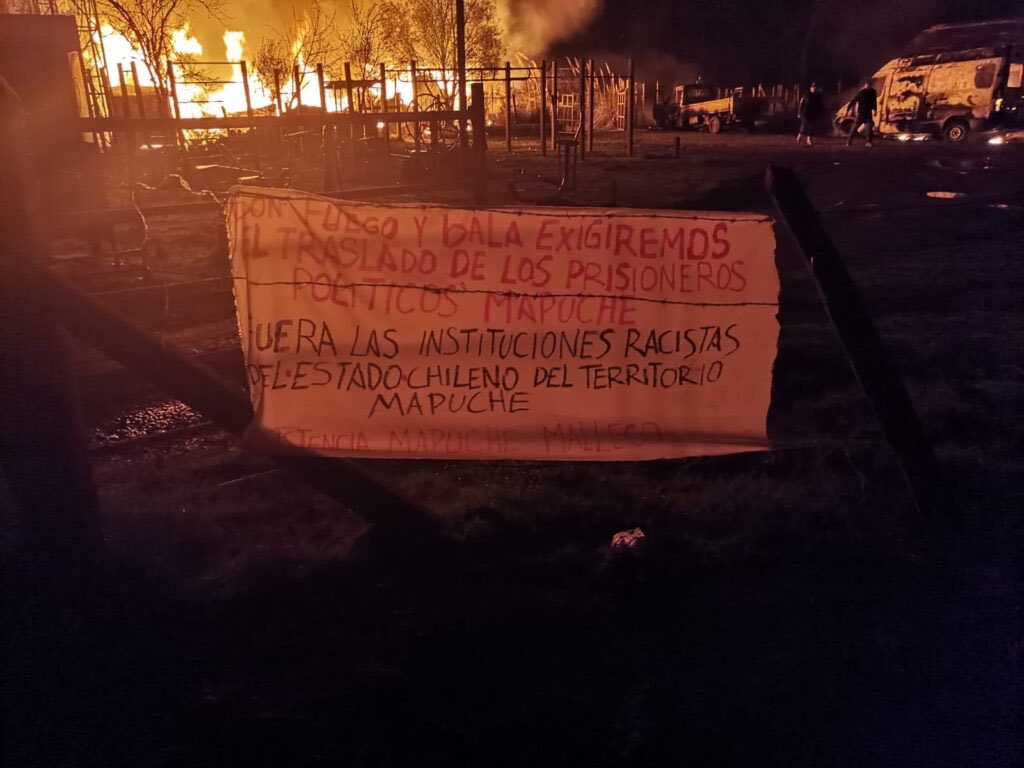 CON FUEGO Y BALA EXIGIREMOS
EL TRASLADO DE LOS PRISIONEROS
POLITICOS MAPUCHE
FUERA LAS INSTITUCIONES RACISTAS
DEL ESTADO CHILENO DEL TERRITORIO
MAPUCHE
MAPUCHE MALLECO